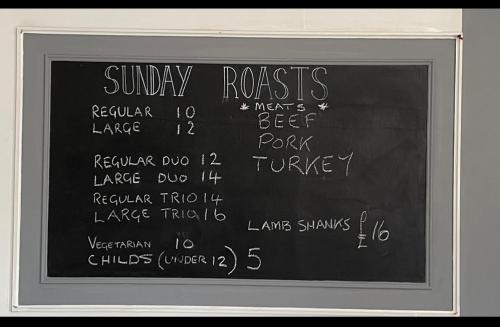 SUNDAY ROASTS
REGULAR 10
LARGE 12
REGULAR DUO 12
LARGE DUO 14
REGULAR TRIO 14
LARGE TRIO 16
VEGETARIAN 10
CHILDS (UNDER 12) 5
* MEATS *
BEEF
PORK
TURKEY
LAMB SHANKS £16